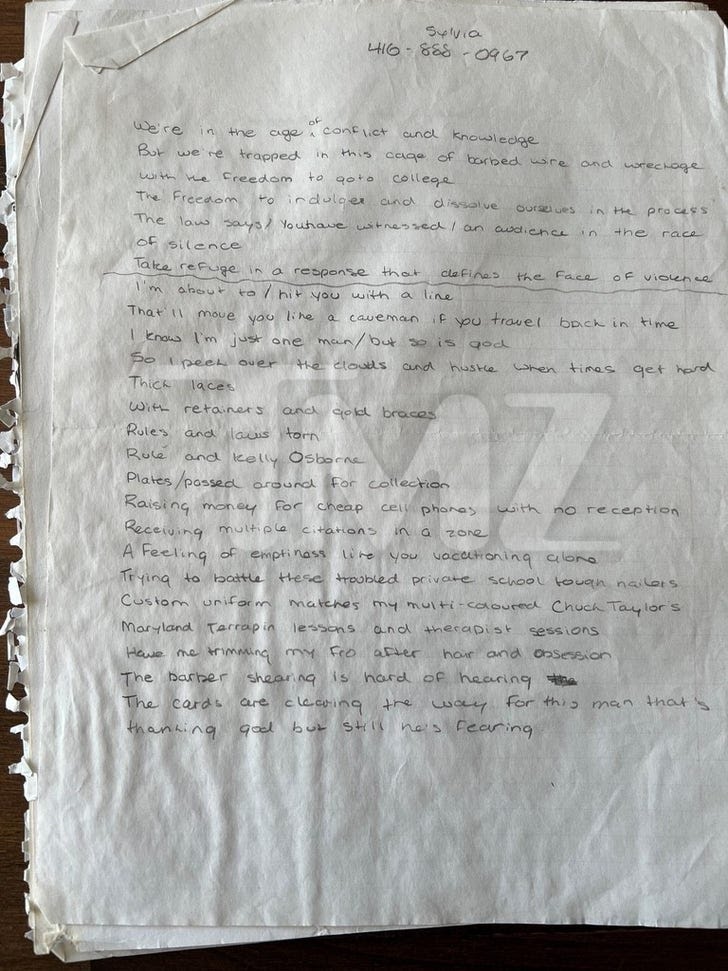 Sylvia
416-888-0967
We're in the age of conflict and knowledge
But we're trapped in this cage of barbed wire and wreckage
with the freedom to goto college
The freedom to indulge and dissolve ourselves in the process
The law says/ You have witnessed/ an audience in the race
of silence
Take refuge in a response that defines the face of violence
I'm about to/ hit you with a line
That'll move you like a caveman if you travel back in time
I know I'm just one man/but so is god
So I peek over the clouds and hustle when times get hard
Thick laces
with retainers and gold braces
Rules and laws torn
Rule and Kelly Osborne
Plates/passed around for collection
Raising money for cheap cell phones with no reception
Receiving multiple citations in a zone
A feeling of emptiness like you vacationing alone
Trying to battle these troubled private school tough nailers
Custom uniform matches my multi-coloured Chuck Taylor's
Maryland Terrapin lessons and therapist sessions
Have me trimming my fro after hair and obsession
The barber shearing is hard of hearing
The cards are clearing the way for this man that's
thanking god but still he's fearing
TMZ